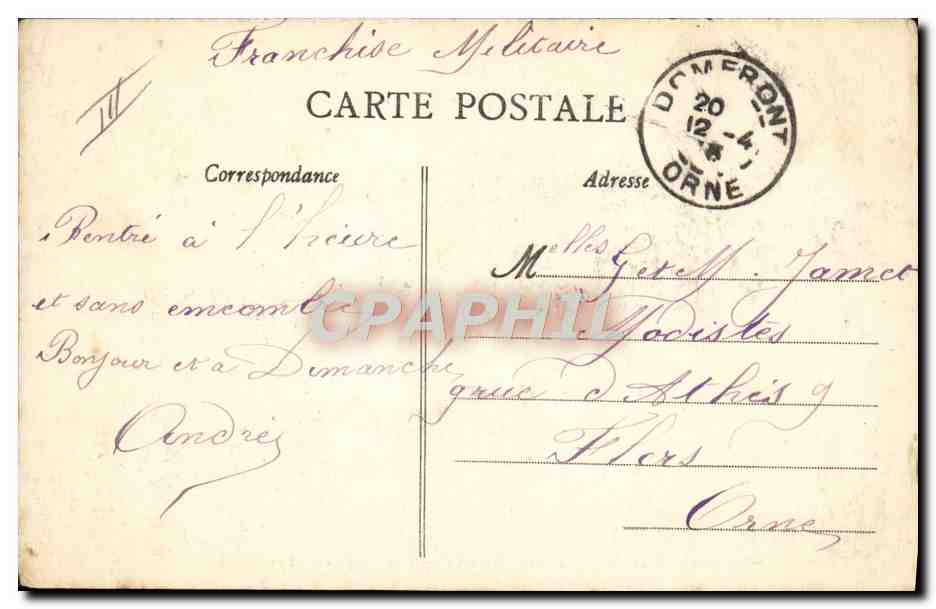 Franchise Militaire
III
CARTE POSTALE
DOMFRONT
20
12 - 4
ORNE
Correspondance
Adresse
Rentré à l'heure
et sans emcombre
Bonjour et a Dimanche
André
Melles G et M. Jamet
Modistes
9 rue d'Athis 9
Flers
Orne
CPAPHIL